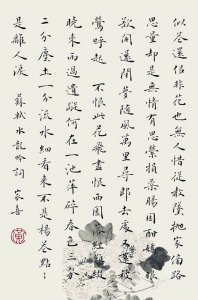 似花還似非花也無人惜從教墜拋家傍路
思量却是無情有思縈損柔腸困酣嬌眼
欲開還閉夢隨風萬里尋郎去處又還被
鶯呼起 不恨此花飛盡恨西園落紅難綴
曉來雨過遺蹤何在一池萍碎春色三分
二分塵土一分流水細看來不是楊花點〻
是離人淚 蘇軾水龍吟詞 家喜